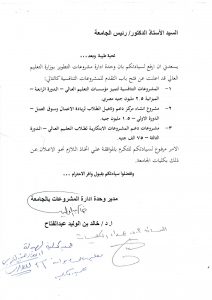 السيد الأستاذ الدكتور/ رئيس الجامعة
تحية طيبة وبعد،،،
يسعدني ان ارفع لسيادتكم بان وحدة إدارة مشروعات التطوير بوزارة التعليم
العالي قد اعلنت عن فتح باب التقدم للمشروعات التنافسية كالتالي:
١- المشروعات التنافسية لتميز مؤسسات التعليم العالي – الدورة الرابعة –
الميزانية ٢.٥ مليون جنيه مصري
٢- مشروع انشاء مراكز دعم وتأهيل الطلاب لريادة الأعمال وسوق العمل –
الدورة الأولي – ١.٥ مليون جنيه
٣- مشروعات دعم المشروعات الابتكارية لطلاب التعليم العالي – الدورة
الثالثة – ٧٥ الف جنيه
الامر مرفوع لسيادتكم للتكرم بالموافقة علي اتخاذ اللازم نحو الاعلان عن
ذلك بكليات الجامعة.
وتفضلوا سيادتكم بقبول وافر الاحترام ...
مدير وحدة ادارة المشروعات بالجامعة
ا.د/ خالد بن الوليد عبدالفتاح